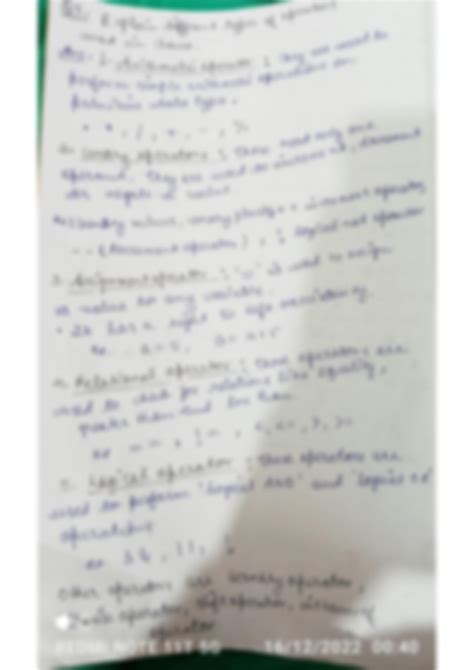 Explain different types of operators
used in Java.
Ans- 1. Arithmetic operator : They are used to
perform simple arithmetic operations on
primitive data type.
* , / , + , - , %
2. Unary operators : These need only one
operand. They are used to increment, decrement
or negate a value.
unary minus, unary plus, + + increment operator,
-- (Decrement operator) , ! logical not operator
3. Assignment operator : '=' is used to assign
a value to any variable.
• It has a right to left
a = 5,
4. Relational operator : These operators are
used to check for relations like equality,
greater than and less than.
== , != , <, <=, >, >=
5. Logical operator : These operators are
used to perform 'logical AND' and 'logical OR'
operations
&& , || , !
Other operators are ternary operator,
operator
REDMI NOTE 11T 5G 16/12/2022 00:40